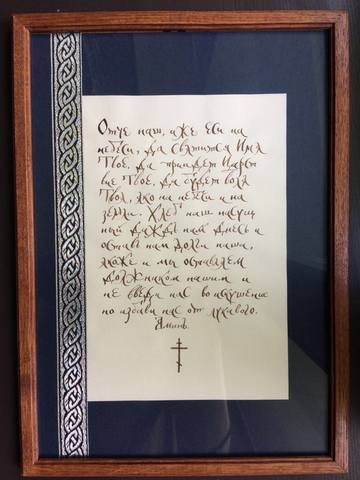 Отче наш, иже еси на
небеси, да святится Имя
Твое, да приидет Царст
вие Твое, да будет воля
Твоя, яко на небеси и на
земли. Хлеб наш насущ
ный даждь нам днесь и
остави нам долги наша,
якоже и мы оставляем
должником нашим и
не введи нас во искушение
но избави нас от лукаваго.
Аминь.